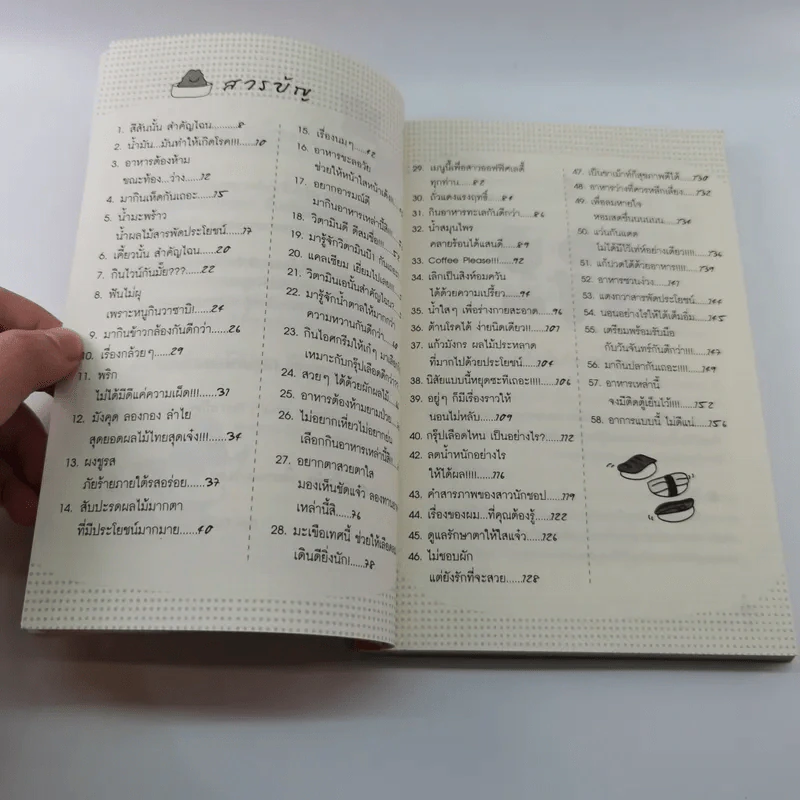 สารบัญ
1. สีสันนั้น สำคัญไฉน.........8
2. น้ำมัน...มันทำให้เกิดโรค!!!...10
3. อาหารต้องห้าม
ขณะท้อง...ว่าง.....12
4. มากินเห็ดกันเถอะ....15
5. น้ำมะพร้าว
น้ำผลไม้สารพัดประโยชน์....17
6. เคี้ยวนั้น สำคัญไฉน....20
7. กินไวน์กันมั๊ย???....22
8. ฟันไม่ผุ
เพราะหนูกินวาซาบิ....24
9. มากินข้าวกล้องกันดีกว่า....26
10. เรื่องกล้วยๆ....29
11. พริก
ไม่ได้มีดีแค่ความเผ็ด!!!....31
12. มังคุด ลองกอง ลำไย
สุดยอดผลไม้ไทยสุดเจ๋ง!!!....34
13. ผงชูรส
ภัยร้ายภายใต้รสอร่อย.....37
14. สับปะรดผลไม้มากตา
ที่มีประโยชน์มากมาย.....40
15. เรื่องนมๆ....42
16. อาหารชะลอวัย
ช่วยให้หน้าใสหน้าเด้ง
17. อยากอารมณ์ดี
มากินอาหารเหล่านี้สิ!!
18. วิตามินดี ดีสมชื่อ!!!
19. มารู้จักวิตามินบี1 กันเถอะ
20. แคลเซียม เยี่ยมไปเลย
21. วิตามินเอนั้นสำคัญไฉน
22. มารู้จักน้ำตาลให้มากกว่า
ความหวานกันดีกว่า
23. กินไอศกรีมให้เก๋ๆ มาเลือก
เหมาะกับกรุ๊ปเลือดดีกว่า
24. สวยๆ ได้ด้วยผักผลไม้
25. อาหารต้องห้ามยามป่วย
26. ไม่อยากเหี่ยวไม่อยากย่น
เลือกกินอาหารเหล่านี้สิ
27. อยากตาสวยตาใส
มองเห็นชัดแจ๋ว ลองทาน
เหล่านี้สิ....76
28. มะเขือเทศนี้ ช่วยให้เลือด
เดินดียิ่งนัก!....78
29. เมนูนี้เพื่อสาวออฟฟิศเลดี้
ทุกท่าน.....82
30. ถั่วแดงแรงฤทธิ์....84
31. กินอาหารทะเลกันดีกว่า....86
32. น้ำสมุนไพร
คลายร้อนได้แสนดี....89
33. Coffee Please!!!....92
34. เลิกเป็นสิงห์อมควัน
ได้ด้วยความเปรี้ยว....94
35. น้ำใสๆ เพื่อร่างกายสะอาด....96
36. ต้านโรคได้ ง่ายนิดเดียว!!....101
37. แก้วมังกร ผลไม้ประหลาด
ที่มากไปด้วยประโยชน์....104
38. นิสัยแบบนี้หยุดซะทีเถอะ!!!!....106
39. อยู่ๆ ก็มีเรื่องราวให้
นอนไม่หลับ....109
40. กรุ๊ปเลือดไหน เป็นอย่างไร?....112
42. ลดน้ำหนักอย่างไร
ให้ได้ผล!!!!....116
43. คำสารภาพของสาวนักชอป....119
44. เรื่องของผม...ที่คุณต้องรู้....122
45. ดูแลรักษาตาให้ใสแจ๋ว....126
46. ไม่ชอบผัก
แต่ยังรักที่จะสวย.....128
47. เป็นซาเม้กก็สุขภาพดีได้....130
48. อาหารว่างที่ควรหลีกเลี่ยง....132
49. เพื่อลมหายใจ
หอมสดชื่นนนนนน....134
50. แว่นกันแดด
ไม่ได้มีไว้เท่ห์อย่างเดียว!!!....136
51. แก้ปวดได้ด้วยอาหาร!!!!....139
52. อาหารชวนง่วง....141
53. แตงกวาสารพัดประโยชน์....144
54. นอนอย่างไรให้ได้เต็มอิ่ม....145
55. เตรียมพร้อมรับมือ
กับวันจันทร์กันดีกว่า!!!....147
56. มากินปลากันเถอะ!!!!....149
57. อาหารเหล่านี้
จงมีติดตู้เย็นไว้!!!!....152
58. อาการแบบนี้ ไม่ดีแน่....156